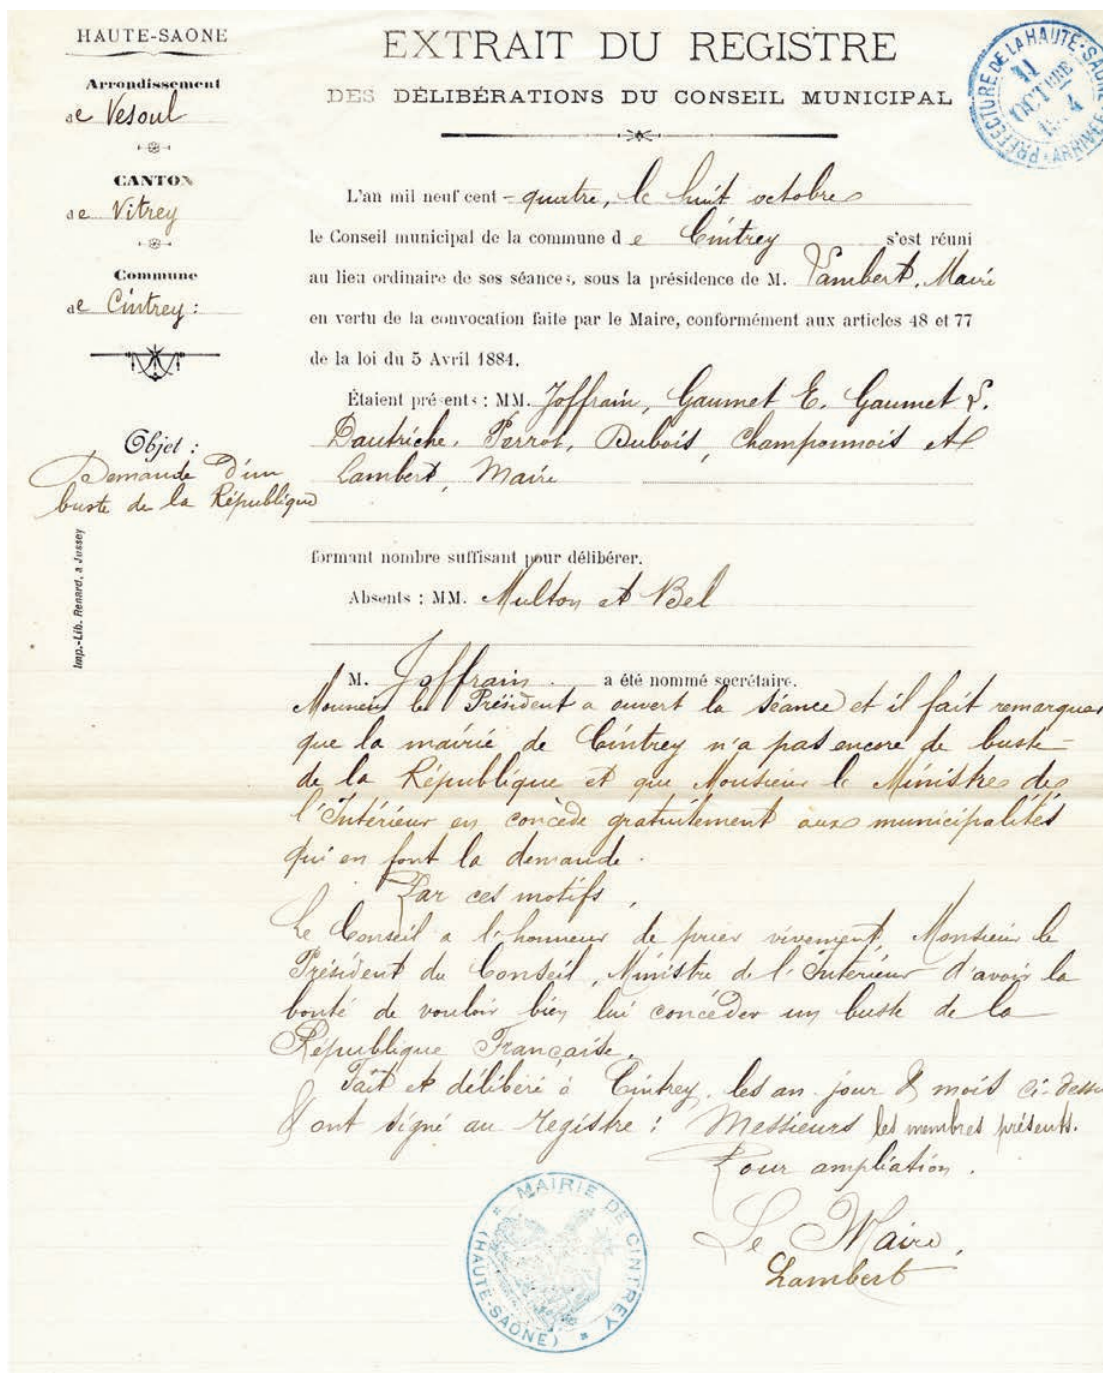 HAUTE-SAONE
Arrondissement
de Vesoul
CANTON
de Vitrey
Commune
de Cintrey :
Objet :
Demande d'un
buste de la République
Imp.-Lib. Renard, à Jussey
EXTRAIT DU REGISTRE
DES DÉLIBÉRATIONS DU CONSEIL MUNICIPAL
PRÉFECTURE DE LA HAUTE-SAÔNE
11
OCTBRE
ARRIVÉE
L'an mil neuf cent - quatre, le huit octobre
le Conseil municipal de la commune de Cintrey s'est réuni
au lieu ordinaire de ses séances, sous la présidence de M. Lambert, Maire
en vertu de la convocation faite par le Maire, conformément aux articles 48 et 77
de la loi du 5 Avril 1884.
Étaient présents : MM. Joffrain, Gaumet E. Gaumet L.
Dautriche, Perrot, Dubois, Champonnois et
Lambert, Maire
formant nombre suffisant pour délibérer.
Absents : MM. Multon et Bel
M. Joffrain a été nommé secrétaire.
Monsieur le Président a ouvert la séance et il fait remarquer
que la mairie de Cintrey n'a pas encore de buste
de la République et que Monsieur le Ministre de
l'Intérieur en concède gratuitement aux municipalités
qui en font la demande.
Par ces motifs,
Le Conseil a l'honneur de prier vivement, Monsieur le
Président du Conseil, Ministre de l'Intérieur d'avoir la
bonté de vouloir bien lui concéder un buste de la
République Française.
Fait et délibéré à Cintrey, les an, jour & mois ci-dessu
& ont signé au registre : Messieurs les membres présents.
Pour ampliation.
Le Maire,
Lambert
MAIRIE DE CINTREY
(HAUTE-SAÔNE)